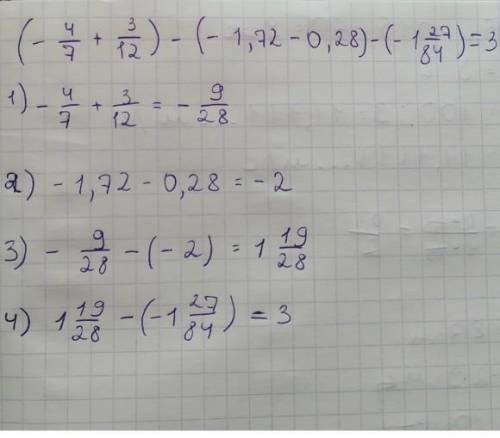 (- 4/7 + 3/12) - (- 1,72 - 0,28) - (- 1 27/84) = 3
1) - 4/7 + 3/12 = - 9/28
2) - 1,72 - 0,28 = - 2
3) - 9/28 - (- 2) = 1 19/28
4) 1 19/28 - (- 1 27/84) = 3